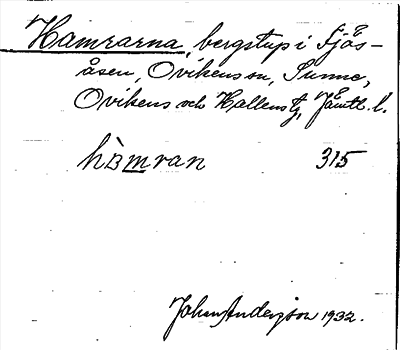 Hamrarna, bergstup i Sjös-
åsen, Ovikens sn, Sunne,
Ovikens och Hallens tg, Jämtl. l.
hamran 315
John Anderzon 1932.